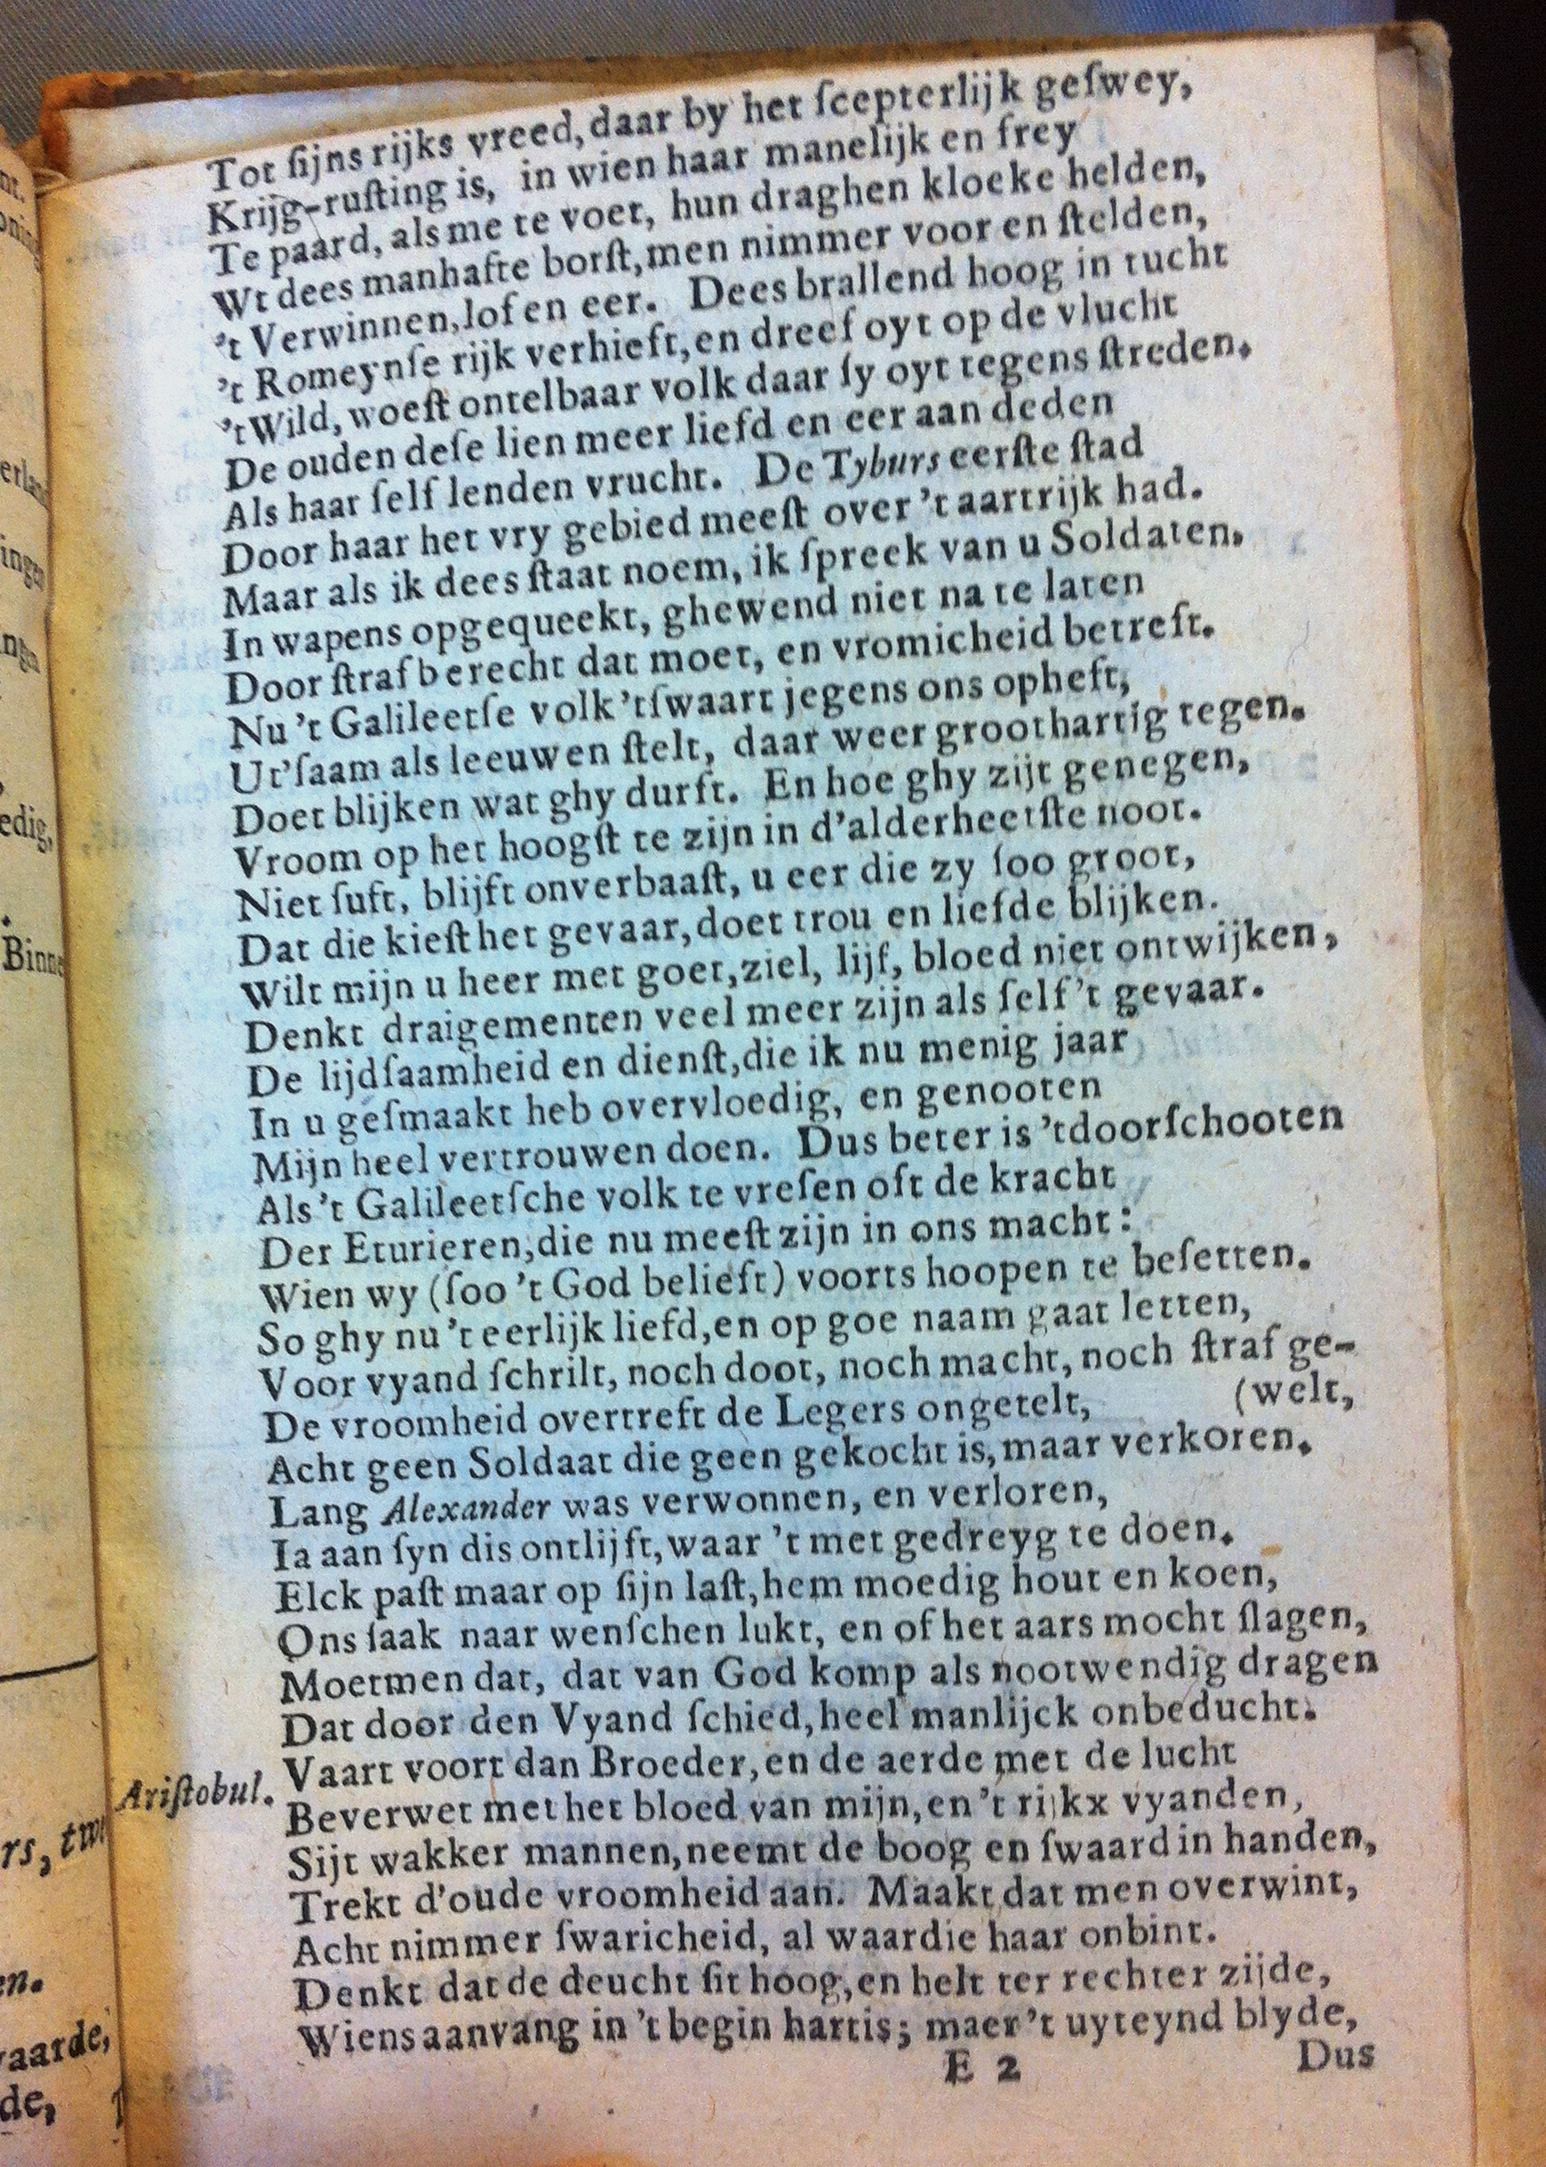 Tot ſijns rijks vreed, daar by het ſcepterlijk geſwey,
Krijg-ruſting is, in wien haar manelijk en frey
Te paard, als me te voet, hun draghen kloeke helden,
Wt dees manhafte borſt, men nimmer voor en ſtelden,
't Verwinnen, lof en eer. Dees brallend hoog in tucht
't Romeynſe rijk verhieft, en dreef oyt op de vlucht
't Wild, woeſt ontelbaar volk daar ſy oyt tegens ſtreden.
De ouden deſe lien meer liefd en eer aan deden
Als haar ſelf lenden vrucht. De Tyburs eerſte ſtad
Door haar het vry gebied meeſt over 't aartrijk had.
Maar als ik dees ſtaat noem, ik ſpreek van u Soldaten.
In wapens opgequeekt, ghewend niet na te laten
Door ſtraf berecht dat moet, en vromicheid betreft.
Nu 't Galileetſe volk 't ſwaart jegens ons opheft,
Ut' ſaam als leeuwen ſtelt, daar weer groothartig tegen.
Doet blijken wat ghy durft. En hoe ghy zijt genegen,
Vroom op het hoogſt te zijn in d'alderheetſte noot.
Niet ſuft, blijft onverbaaſt, u eer die zy ſoo groot,
Dat die kieſt het gevaar, doet trou en liefde blijken.
Wilt mijn u heer met goet, ziel, lijf, bloed niet ontwijken,
Denkt draigementen veel meer zijn als ſelf 't gevaar.
De lijdſaamheid en dienſt, die ik nu menig jaar
In u geſmaakt heb overvloedig, en genooten
Mijn heel vertrouwen doen. Dus beter is 't doorſchooten
Als 't Galileetſche volk te vreſen oft de kracht
Der Eturieren, die nu meeſt zijn in ons macht:
Wien wy (ſoo 't God belieft) voorts hoopen te beſetten.
So ghy nu 't eerlijk liefd, en op goe naam gaat letten,
Voor vyand ſchrilt, noch doot, noch macht, noch ſtraf ge-
De vroomheid overtreft de Legers ongetelt, (welt,
Acht geen Soldaat die geen gekocht is, maar verkoren.
Lang Alexander was verwonnen, en verloren,
Ia aan ſyn dis ontlijft, waar 't met gedreyg te doen.
Elck paſt maar op ſijn laſt, hem moedig hout en koen,
Ons ſaak naar wenſchen lukt, en of het aars mocht ſlagen,
Moetmen dat, dat van God komp als nootwendig dragen
Dat door den Vyand ſchied, heel manlijck onbeducht.
Ariſtobul. Vaart voort dan Broeder, en de aerde met de lucht
Beverwet met het bloed van mijn, en 't rijkx vyanden,
Sijt wakker mannen, neemt de boog en ſwaard in handen,
Trekt d'oude vroomheid aan. Maakt dat men overwint,
Acht nimmer ſwaricheid, al waar die haar onbint.
Denkt dat de deucht ſit hoog, en helt ter rechter zijde,
Wiens aanvang in 't begin hart is; maer 't uyteynd blyde,
E 2 Dus